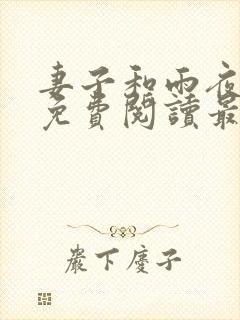 妻子和雨夜
免費閱讀最
巖下慶子